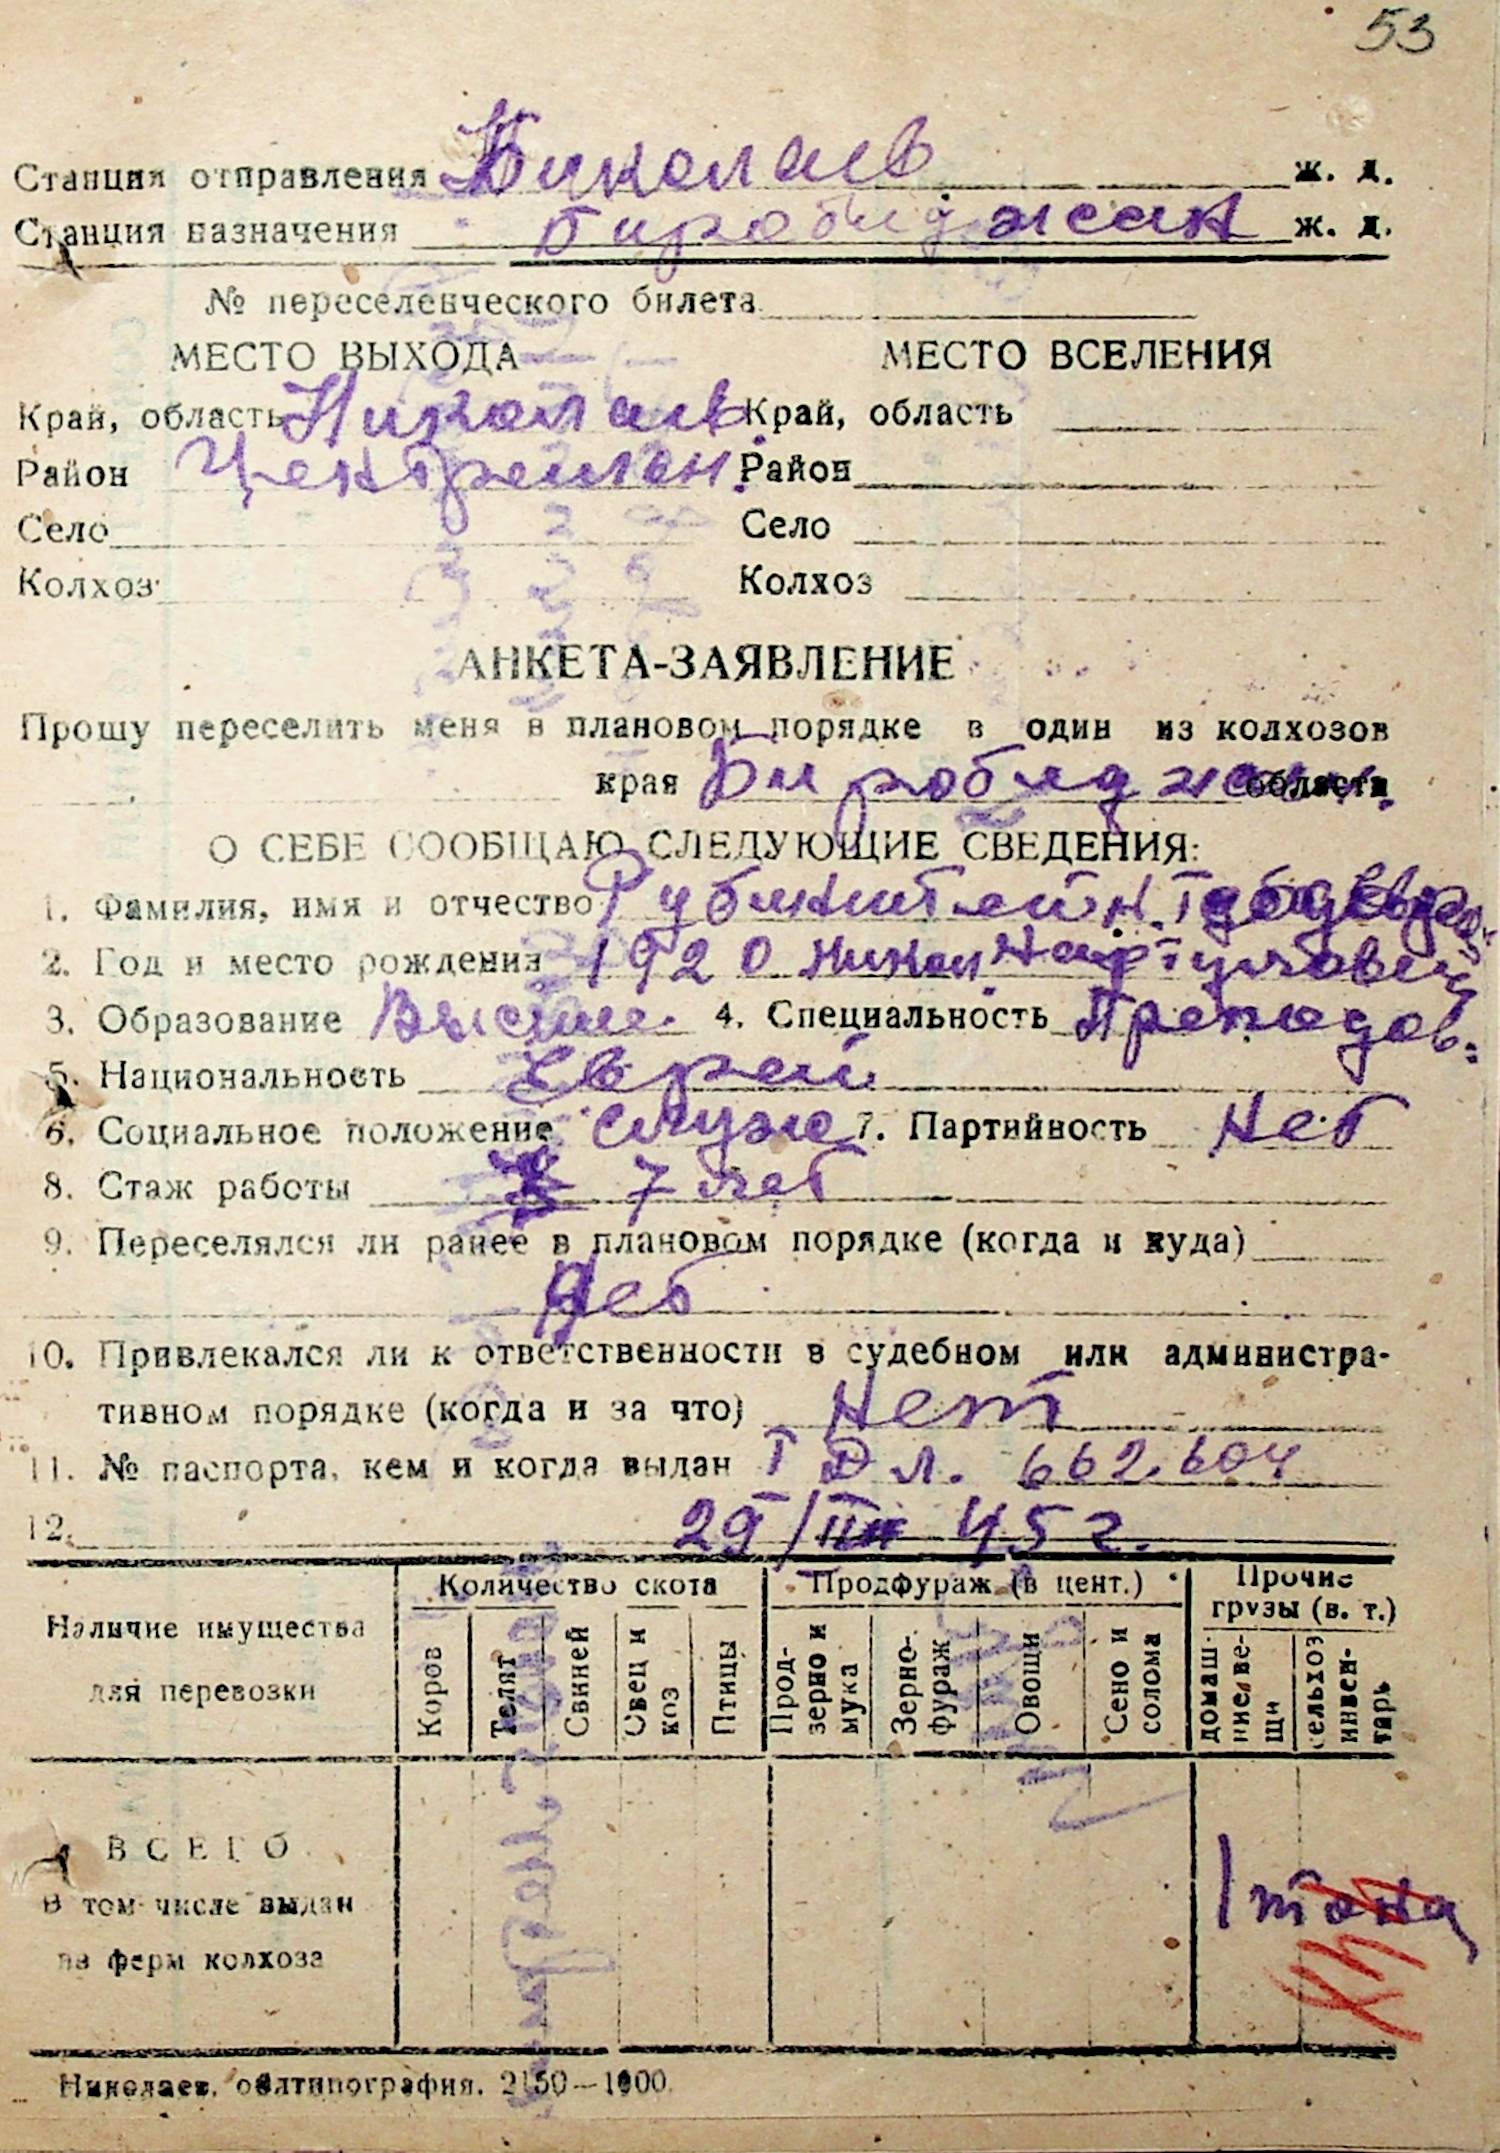 53
Станция отправления Николаев ж. д.
Станция назначения Биробиджан ж. д.
№ переселенческого билета
МЕСТО ВЫХОДА МЕСТО ВСЕЛЕНИЯ
Край, область Николаев. Край, область
Район Центральн. Район
Село Село
Колхоз Колхоз
АНКЕТА-ЗАЯВЛЕНИЕ
Прошу переселить меня в плановом порядке в один из колхозов
края Биробиджан. области
О СЕБЕ СООБЩАЮ СЛЕДУЮЩИЕ СВЕДЕНИЯ:
1. Фамилия, имя и отчество Рубинштейн
2. Год и место рождения 1920 Никол. Нафтулович
3. Образование Высше. 4. Специальность Преподов.
5. Национальность Еврей
6. Социальное положение служ 7. Партийность Нет
8. Стаж работы 7 лет
9. Переселялся ли ранее в плановом порядке (когда и куда)
Нет
10. Привлекался ли к ответственности в судебном или администра-
тивном порядке (когда и за что) Нет
11. № паспорта, кем и когда выдан 662.604
12. 29/III 45 г.
Наличие имущества для перевозки
Количество скота Продфураж (в цент.) Прочие грузы (в. т.)
Коров Телят Свиней Овец и коз Птицы Прод-зерно и мука Зерно-фураж Овощи Сено и солома домаш-ние ве-щи сельхоз инвен-тарь
ВСЕГО
В том числе выдан
из ферм колхоза
1 тонна
Николаев, облтипография. 2150—1000